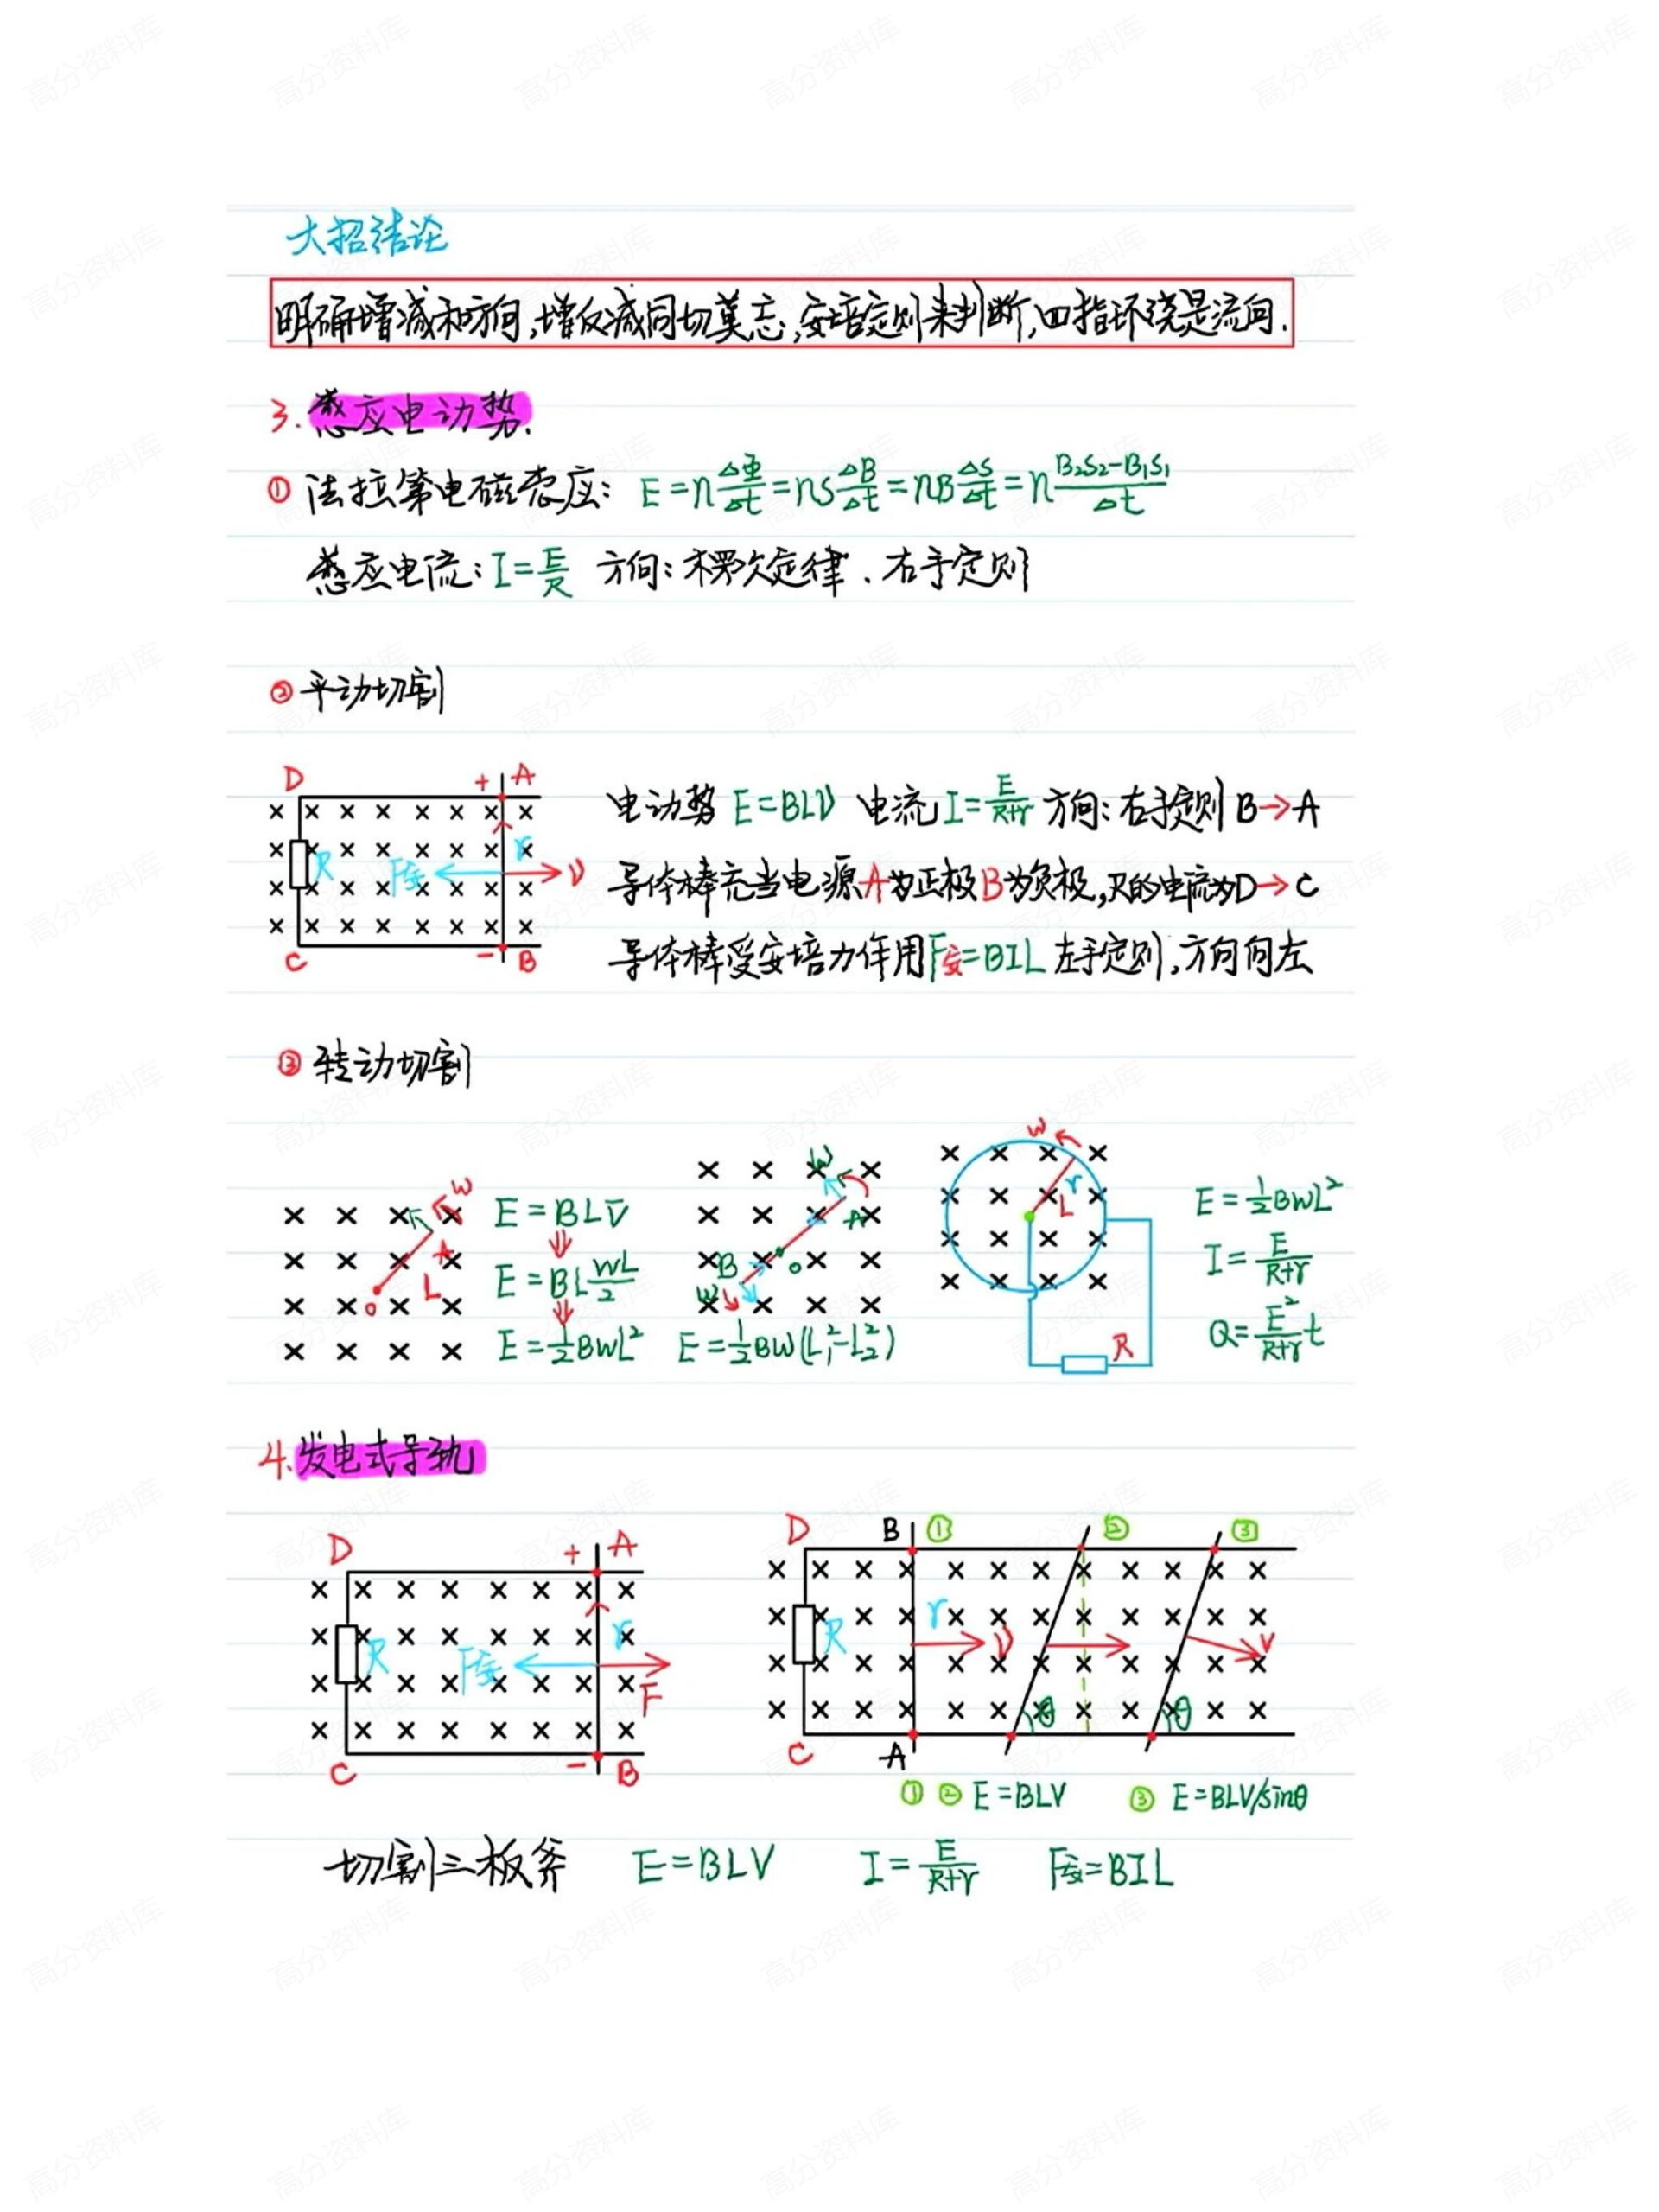 大招结论
明确增减和方向,增反减同切莫忘,安培定则来判断,四指环绕是流向.
3.感应电动势.
① 法拉第电磁感应: E=nΔΦ/Δt=nSΔB/Δt=nBΔS/Δt=n(B₂S₂-B₁S₁)/Δt
感应电流:I=E/R 方向:楞次定律、右手定则
② 平动切割
D + A
R F安 r v
C - B
电动势 E=BLV 电流I=E/(R+r) 方向:右手定则 B→A
导体棒充当电源A为正极B为负极,R的电流为D→C
导体棒受安培力作用F安=BIL 左手定则,方向向左
③ 转动切割
W A L o
E=BLV̄
E=BL WL/2
E=½BWL²
W A o B W
E=½BW(L₁²-L₂²)
W r L R
E=½BWL²
I=E/(R+r)
Q=E²/(R+r) t
4.发电式导轨
D + A
R F安 r F
C - B
D B ① ② ③
R r V V
C A θ θ
① ② E=BLV ③ E=BLV/sinθ
切割三板斧 E=BLV I=E/(R+r) F安=BIL
高分资料库